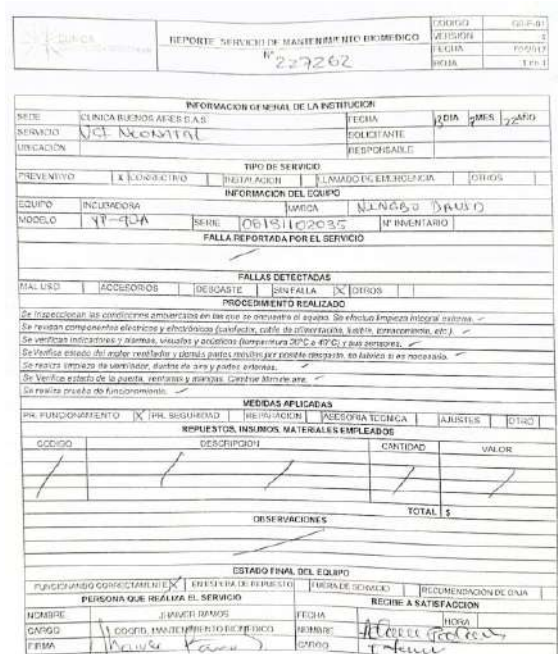 CLINICA
REPORTE SERVICIO DE MANTENIMIENTO BIOMEDICO
N° 227262
CODIGO
VERSIÓN
FECHA
HOJA 1 en 1
INFORMACION GENERAL DE LA INSTITUCION
SEDE CLINICA BUENOS AIRES S.A.S FECHA 13 DIA MES 22 AÑO
SERVICIO UCI NEONATAL SOLICITANTE
UBICACIÓN RESPONSABLE
TIPO DE SERVICIO
PREVENTIVO X CORRECTIVO INSTALACION LLAMADO DE EMERGENCIA OTROS
INFORMACION DEL EQUIPO
EQUIPO INCUBADORA MARCA NINGBO DAVID
MODELO YP-90A SERIE N° INVENTARIO
FALLA REPORTADA POR EL SERVICIO
FALLAS DETECTADAS
MAL USO ACCESORIOS DESGASTE SIN FALLA X OTROS
PROCEDIMIENTO REALIZADO
Se inspeccionan las condiciones ambientales en las que se encuentra el equipo. Se efectua limpieza integral externa.
Se revisan componentes electricos y electrónicos (calefactor, cable de alimentación, fusible, tomacorriente, etc.).
Se verifican indicadores y alarmas, visuales y acústicas (temperatura 38°C a 40°C) y sus sensores.
Se Verifica estado del motor ventilador y demás partes móviles por posible desgaste, se lubrica si es necesario.
Se realiza limpieza de ventilador, ductos de aire y partes externas.
Se Verifica estado de la puerta, ventanas y mangas. Cambiar filtro de aire.
Se realiza prueba de funcionamiento.
MEDIDAS APLICADAS
PR. FUNCIONAMIENTO X PR. SEGURIDAD REPARACION ASESORIA TECNICA AJUSTES OTRO
REPUESTOS, INSUMOS, MATERIALES EMPLEADOS
CODIGO DESCRIPCION CANTIDAD VALOR
TOTAL $
OBSERVACIONES
ESTADO FINAL DEL EQUIPO
FUNCIONANDO CORRECTAMENTE X EN ESPERA DE REPUESTO FUERA DE SERVICIO RECOMENDACIÓN DE BAJA
PERSONA QUE REALIZA EL SERVICIO RECIBE A SATISFACCION
NOMBRE JHAIVER RAMOS FECHA HORA
CARGO COORD. MANTENIMIENTO BIOMEDICO NOMBRE
FIRMA CARGO